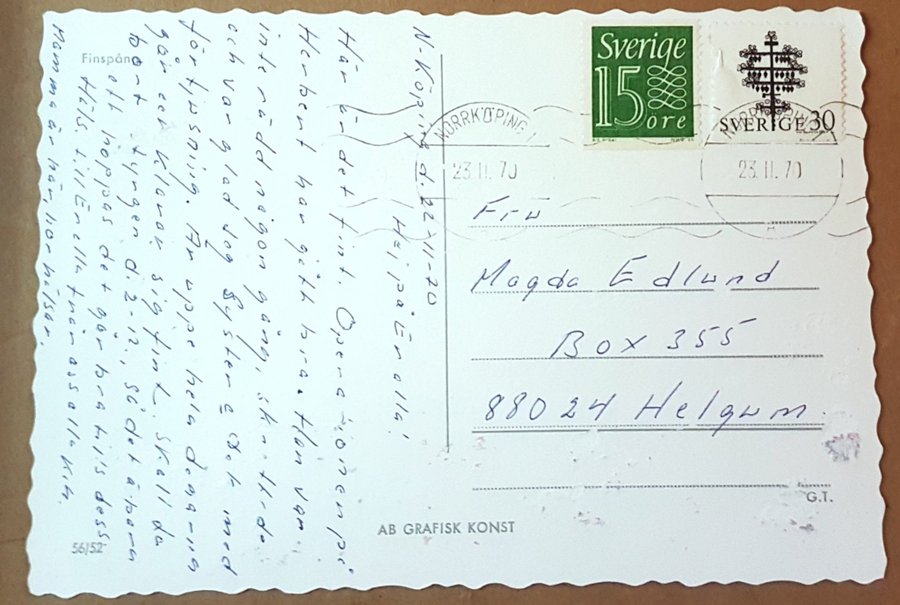 Finspång
N-Köping d. 22-11-70
Hejpå Er alla!
Här är det fint. Operationen på
Herbert har gått bra. Han var
inte rädd någon gång, skrattade
och var glad
förtjusning. Är uppe hela dagarna
går o klarar sig fint. skall ta
bort tyngen d. 2-12, så det är bara
att hoppas det går bra tills dess
Häls. till Er alla från oss alla
Mamma är här hon hälsar.
56/52
AB GRAFISK KONST
Sverige
15
öre
SVERIGE 30
NORRKÖPING 1
23.11.70
NORRKÖPING
23.11.70
Fru
Magda Edlund
Box 355
88024 Helgum.
G.T.